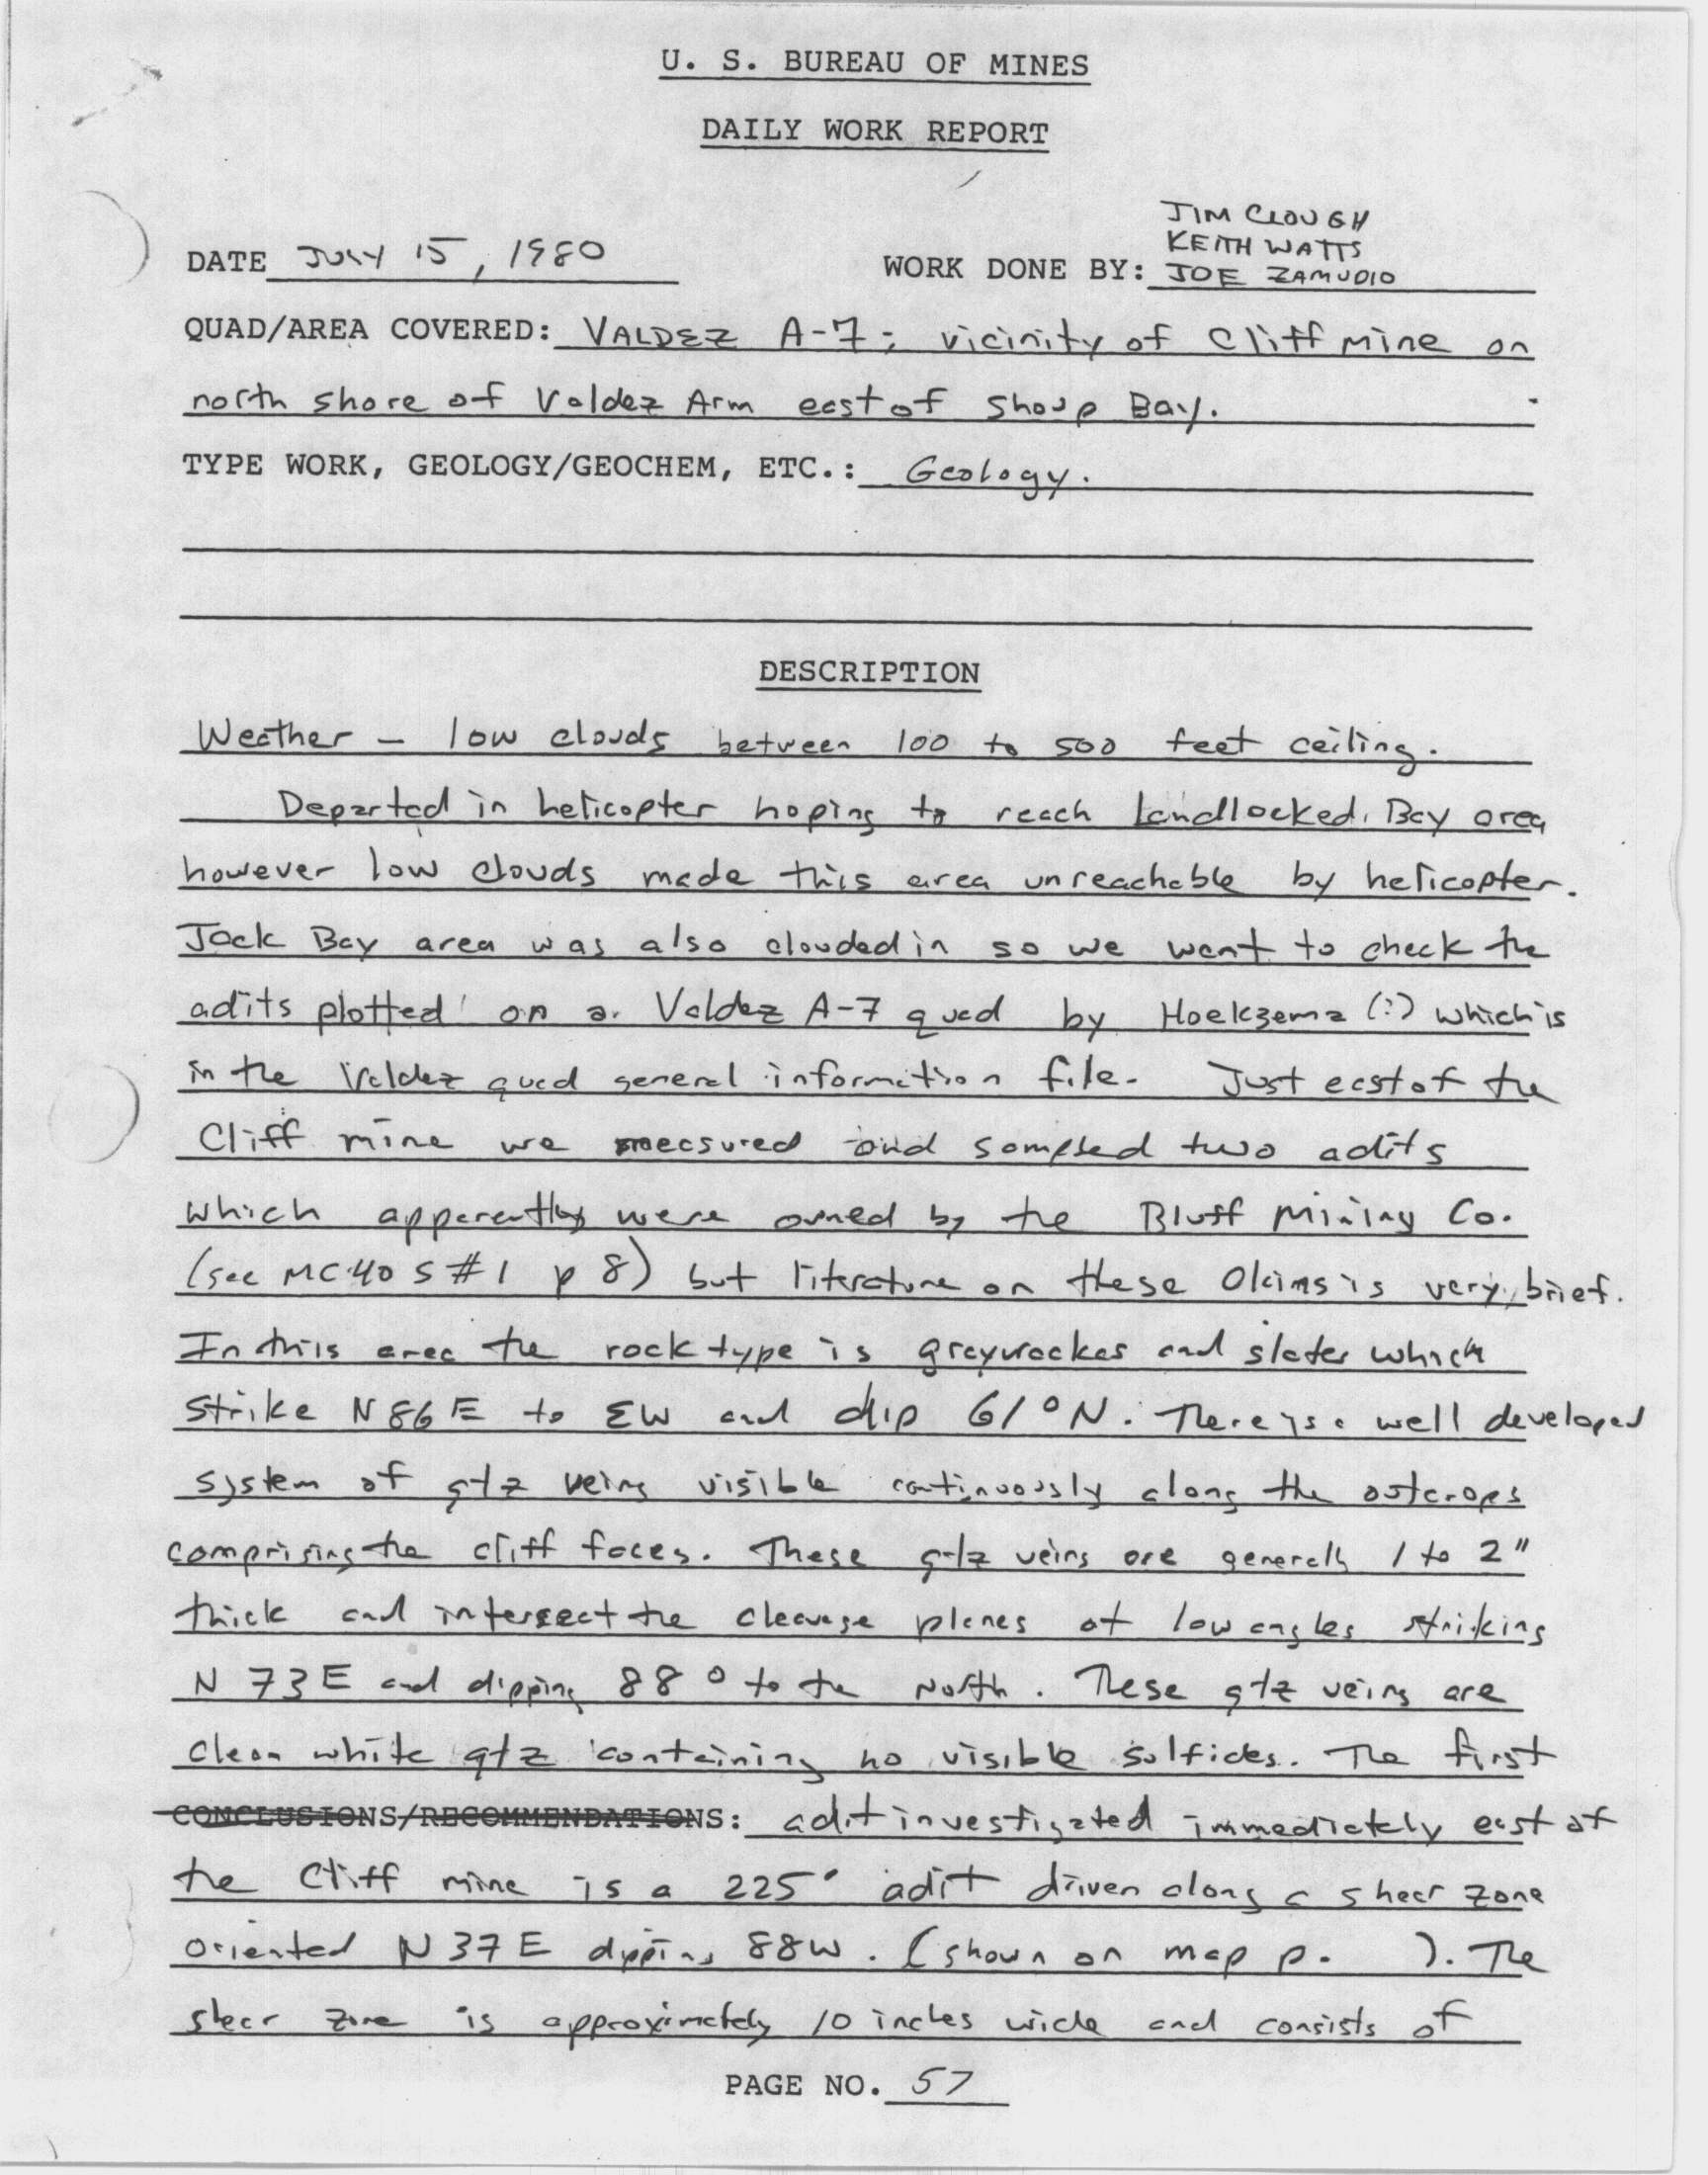 U. S. BUREAU OF MINES
DAILY WORK REPORT
JIM CLOUGH
KEITH WATTS
DATE JULY 15, 1980 WORK DONE BY: JOE ZAMUDIO
QUAD/AREA COVERED: VALDEZ A-7; vicinity of Cliff Mine on
north shore of Valdez Arm east of Shoup Bay.
TYPE WORK, GEOLOGY/GEOCHEM, ETC.: Geology.
DESCRIPTION
Weather - low clouds between 100 to 500 feet ceiling.
Departed in helicopter hoping to reach Landlocked Bay area
however low clouds made this area unreachable by helicopter.
Jack Bay area was also clouded in so we went to check the
adits plotted on a Valdez A-7 quad by Hoekzema (?) which is
in the Valdez quad general information file. Just east of the
Cliff mine we measured and sampled two adits
which apparently were owned by the Bluff Mining Co.
(see MC40S #1 p 8) but literature on these is very brief.
In this area the rock type is greywackes and slates which
strike N86E to EW and dip 61°N. There is a well developed
system of qtz veins visible continuously along the outcrops
comprising the cliff faces. These qtz veins are generally 1 to 2"
thick and intersect the cleavage planes at low angles striking
N 73E and dipping 88° to the North. These qtz veins are
clean white qtz containing no visible sulfides. The first
CONCLUSIONS/RECOMMENDATIONS: adit investigated immediately east of
the Cliff mine is a 225' adit driven along a shear zone
oriented N37E dipping 88W. (shown on map p. ). The
shear zone is approximately 10 inches wide and consists of
PAGE NO. 57